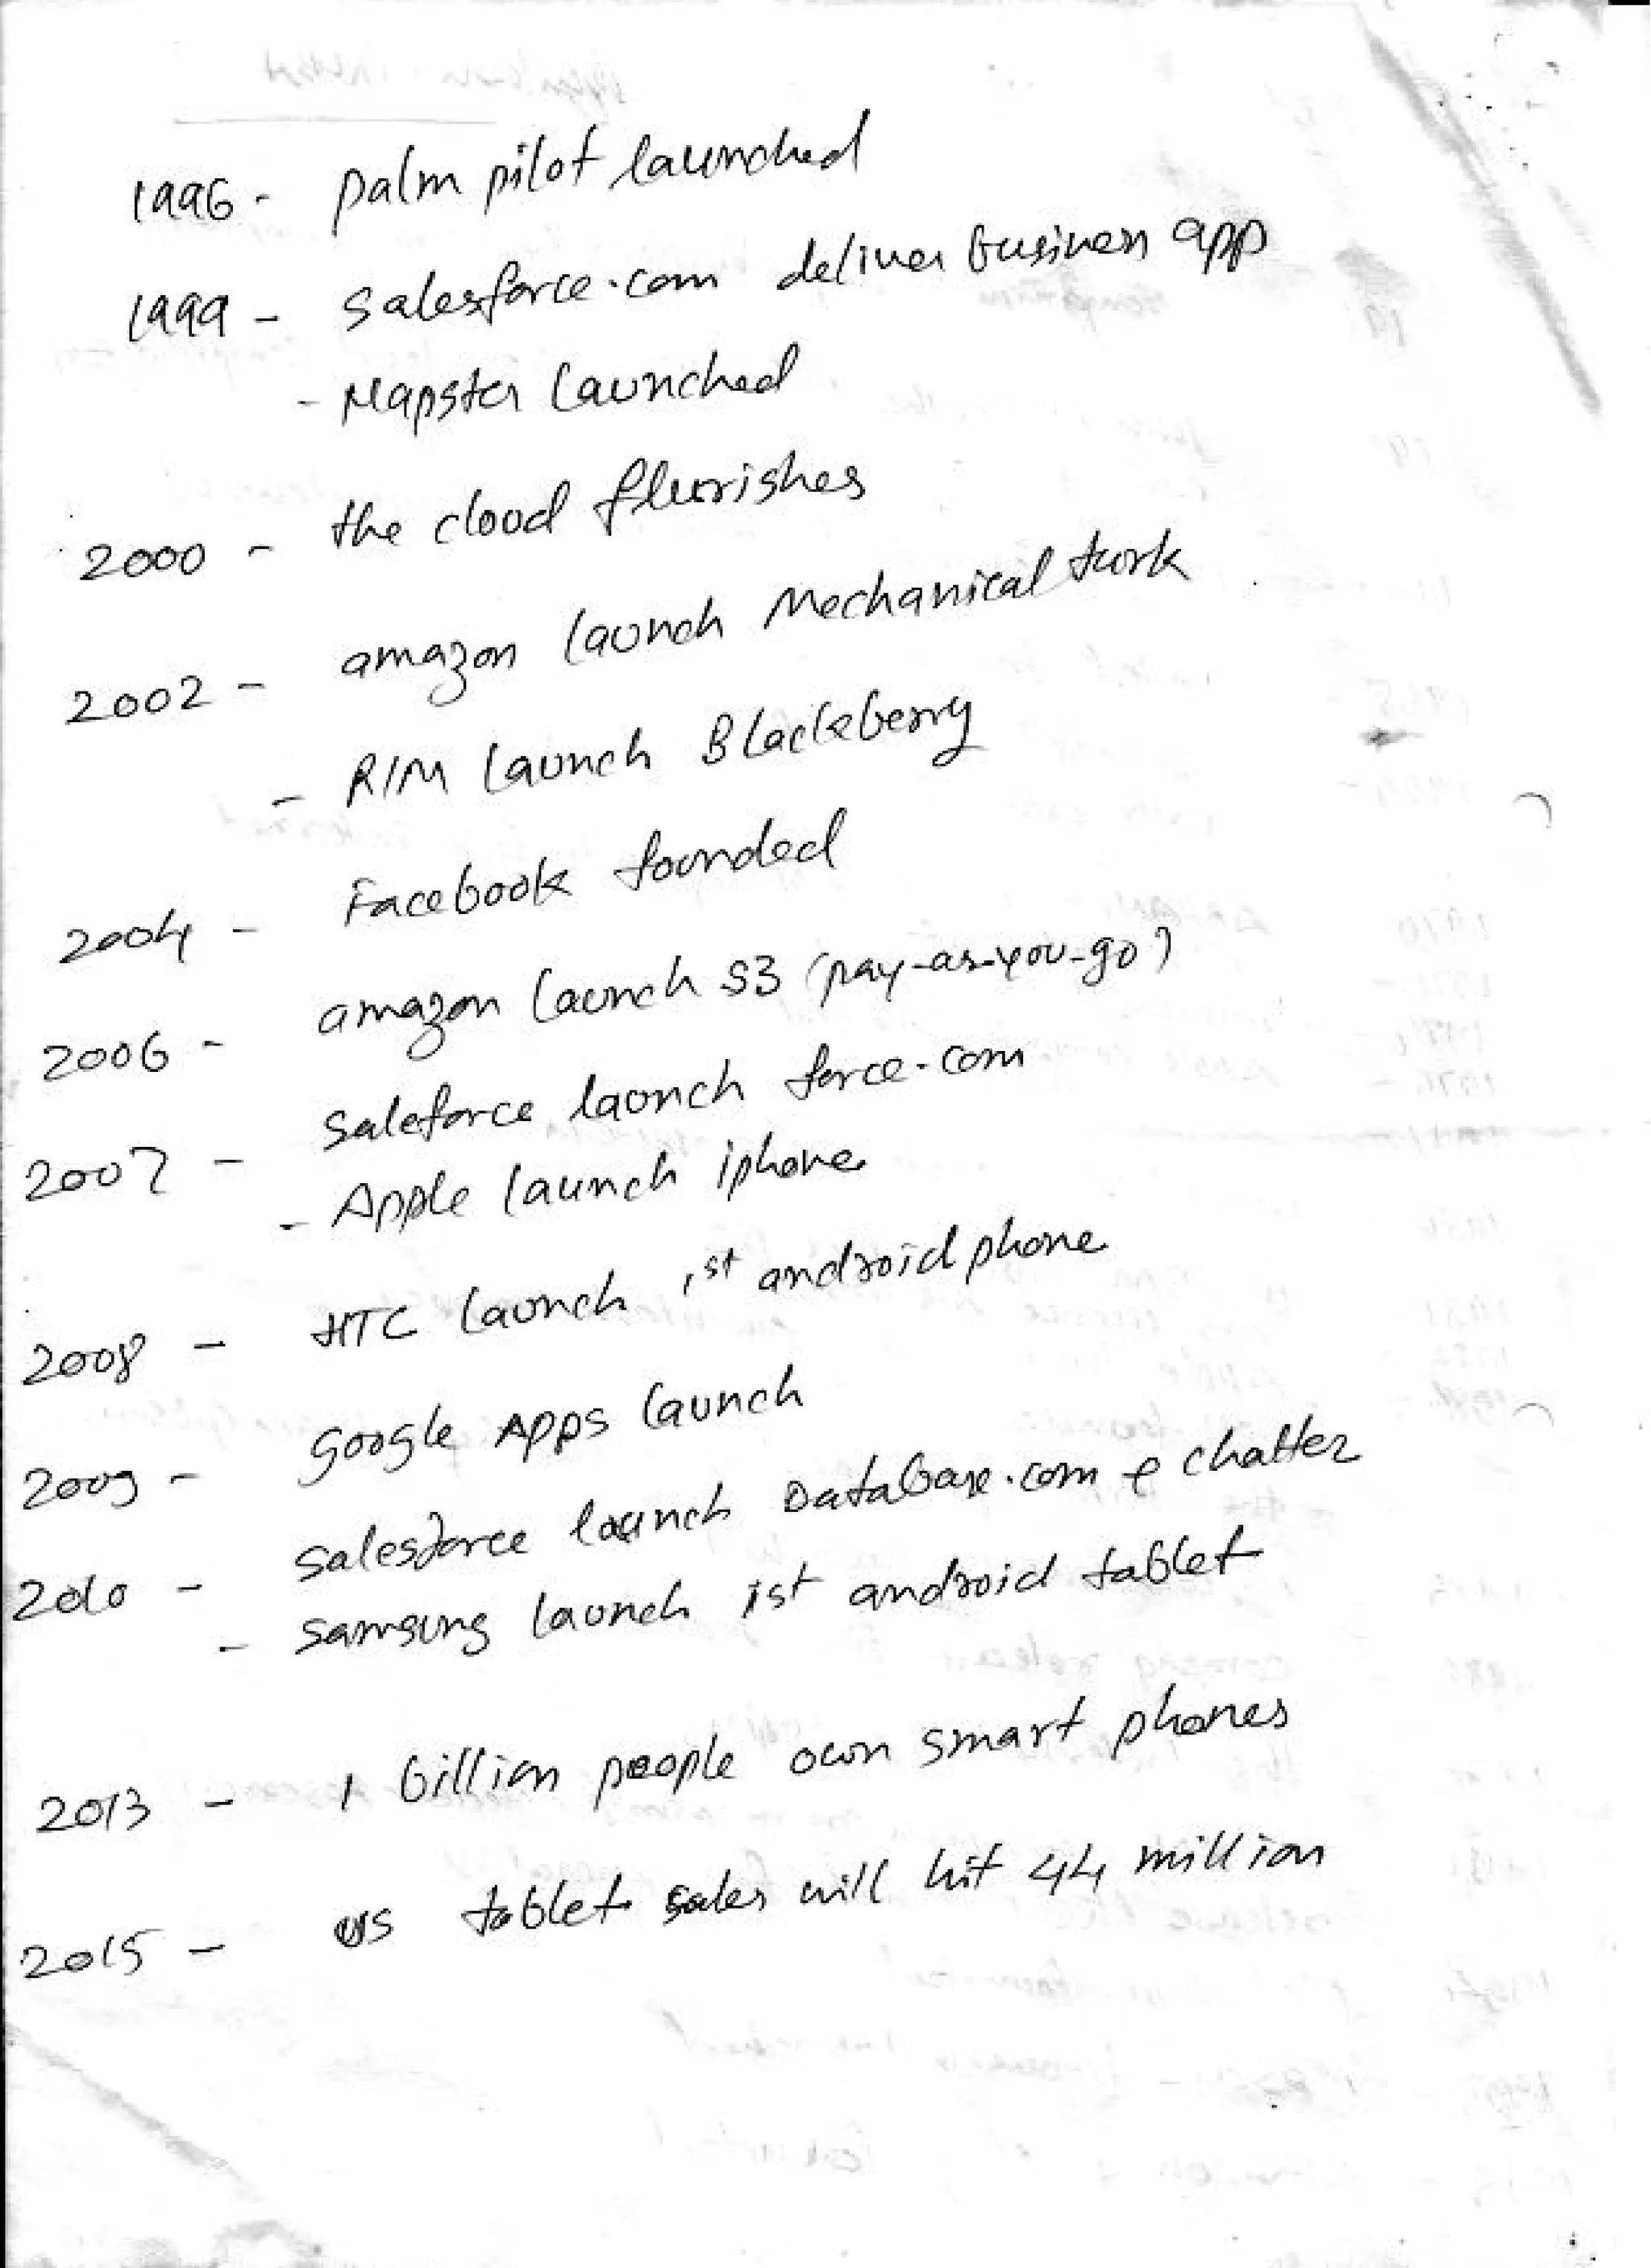 1996 - palm pilot launched
1999 - salesforce.com deliver business app
- Napster launched
2000 - the cloud flurishes
2002 - amazon launch Mechanical turk
- RIM launch Blackberry
2004 - Facebook founded
2006 - amazon launch S3 (pay-as-you-go)
2007 - Saleforce launch force.com
- Apple launch iphone
2008 - HTC launch 1st android phone
2009 - google Apps launch
2010 - salesforce launch Database.com & chatter
- samsung launch 1st android tablet
2013 - 1 billion people own smart phones
2015 - US tablet sales will hit 44 million